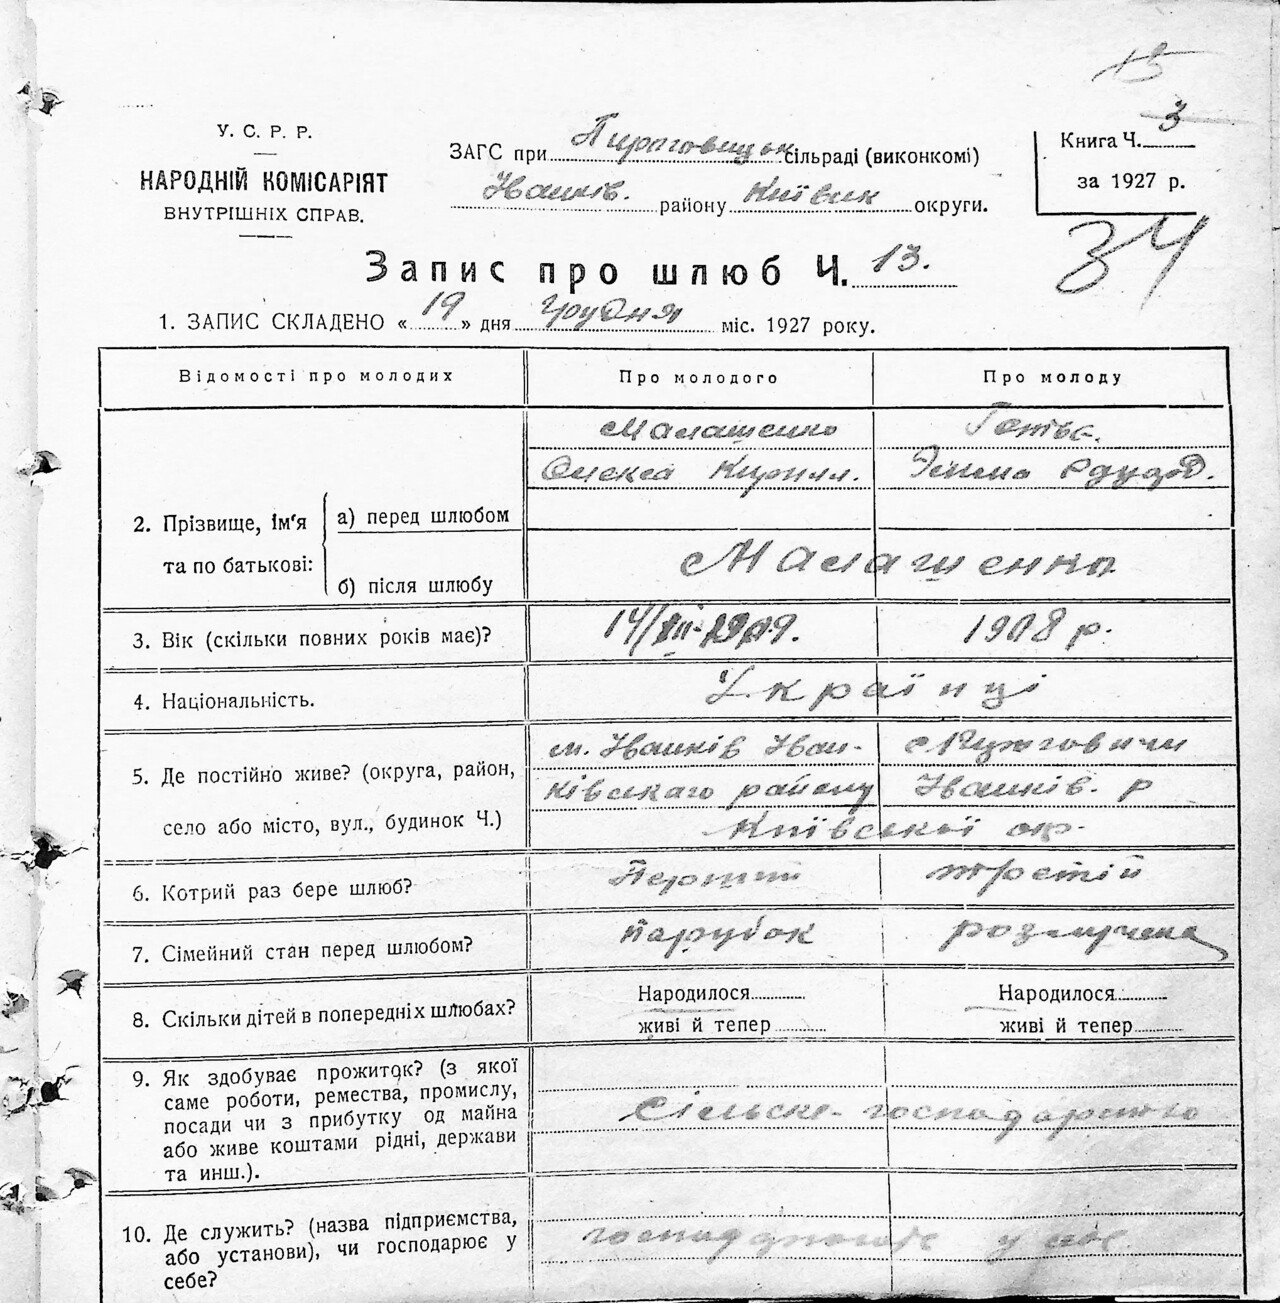 15
У. С. Р. Р.
НАРОДНІЙ КОМІСАРІЯТ
ВНУТРІШНІХ СПРАВ.
ЗАГС при Пироговицьк сільраді (виконкомі)
Іванків. району Київськ округи.
Книга Ч. 3
за 1927 р.
34
Запис про шлюб Ч. 13.
1. ЗАПИС СКЛАДЕНО « 19 » дня Грудня міс. 1927 року.
Відомості про молодих Про молодого Про молоду
Малашенко
Олекса Кирил.
2. Прізвище, ім'я та по батькові:
а) перед шлюбом
б) після шлюбу
Малашенко
3. Вік (скільки повних років має)? 1908 р.
4. Національність. Українці
5. Де постійно живе? (округа, район,
село або місто, вул., будинок Ч.)
м. Іванків Іван-
ківського району Іванків. р
Київської окр.
6. Котрий раз бере шлюб? Перший третій
7. Сімейний стан перед шлюбом? парубок розлучена
8. Скільки дітей в попередніх шлюбах? Народилося Народилося
живі й тепер живі й тепер
9. Як здобуває прожиток? (з якої
саме роботи, ремества, промислу,
посади чи з прибутку од майна
або живе коштами рідні, держави
та инш.).
Сільське-господарства
10. Де служить? (назва підприємства,
або установи), чи господарює у
себе?
у себе